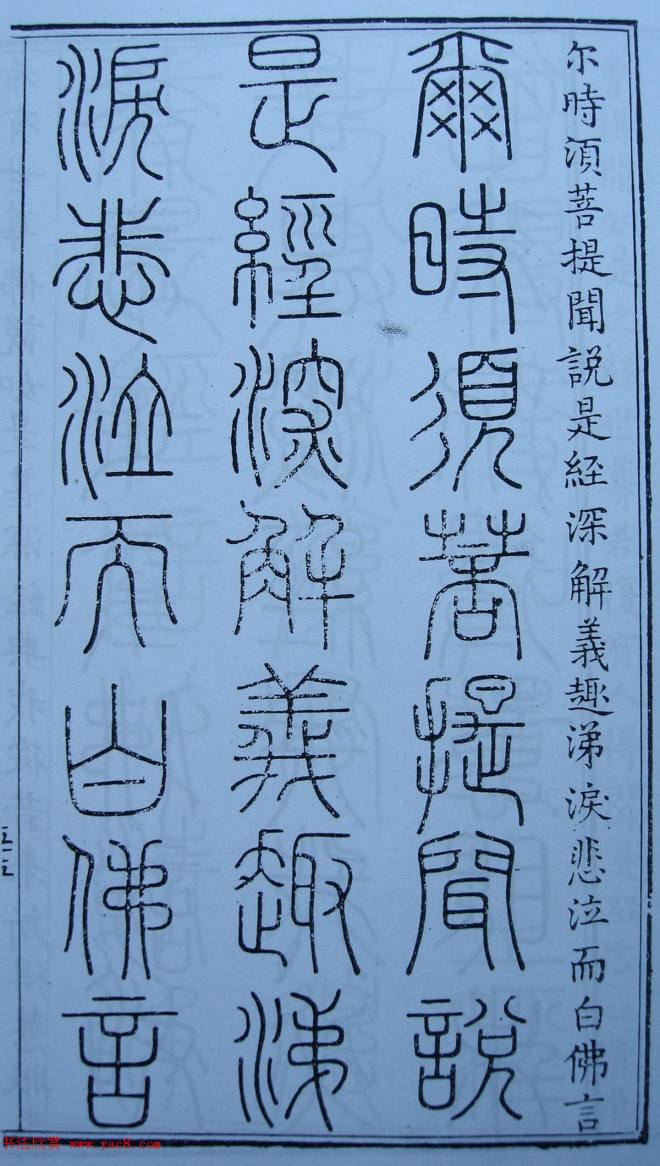 尔時湏菩提聞説是経深解義趣涕淚悲泣而白佛言
爾時須菩提聞說
是經深解義趣涕
淚悲泣而白佛言
五五
书法欣赏 www.yac8.com